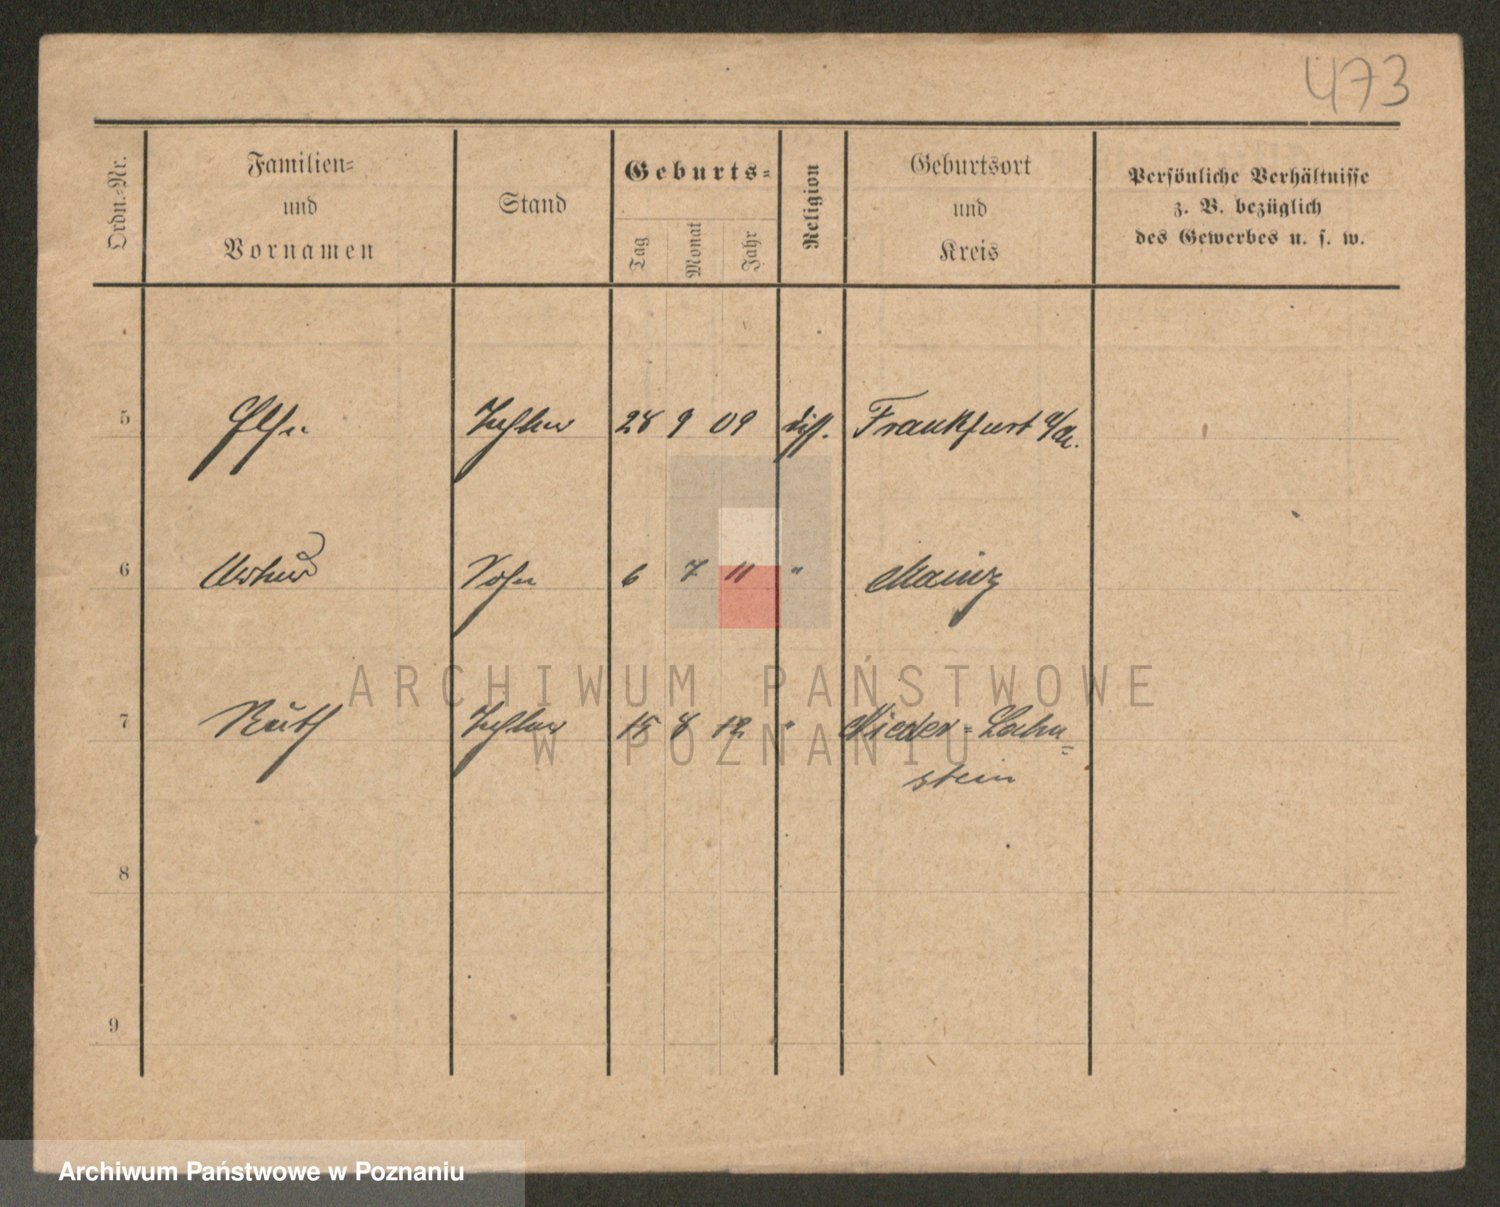 473
Ordn.-Nr.
Familien-
und
Vornamen
Stand
Geburts-
Tag
Monat
Jahr
Religion
Geburtsort
und
Kreis
Persönliche Verhältnisse
z. B. bezüglich
des Gewerbes u. s. w.
5 Else Tochter 28 9 09 diss. Frankfurt a/M.
6 Arthur Sohn 6 7 11 " Mainz
7 Ruth Tochter 15 8 12 " Nieder-Lahn-
stein
8
9
ARCHIWUM PAŃSTWOWE
W POZNANIU
Archiwum Państwowe w Poznaniu